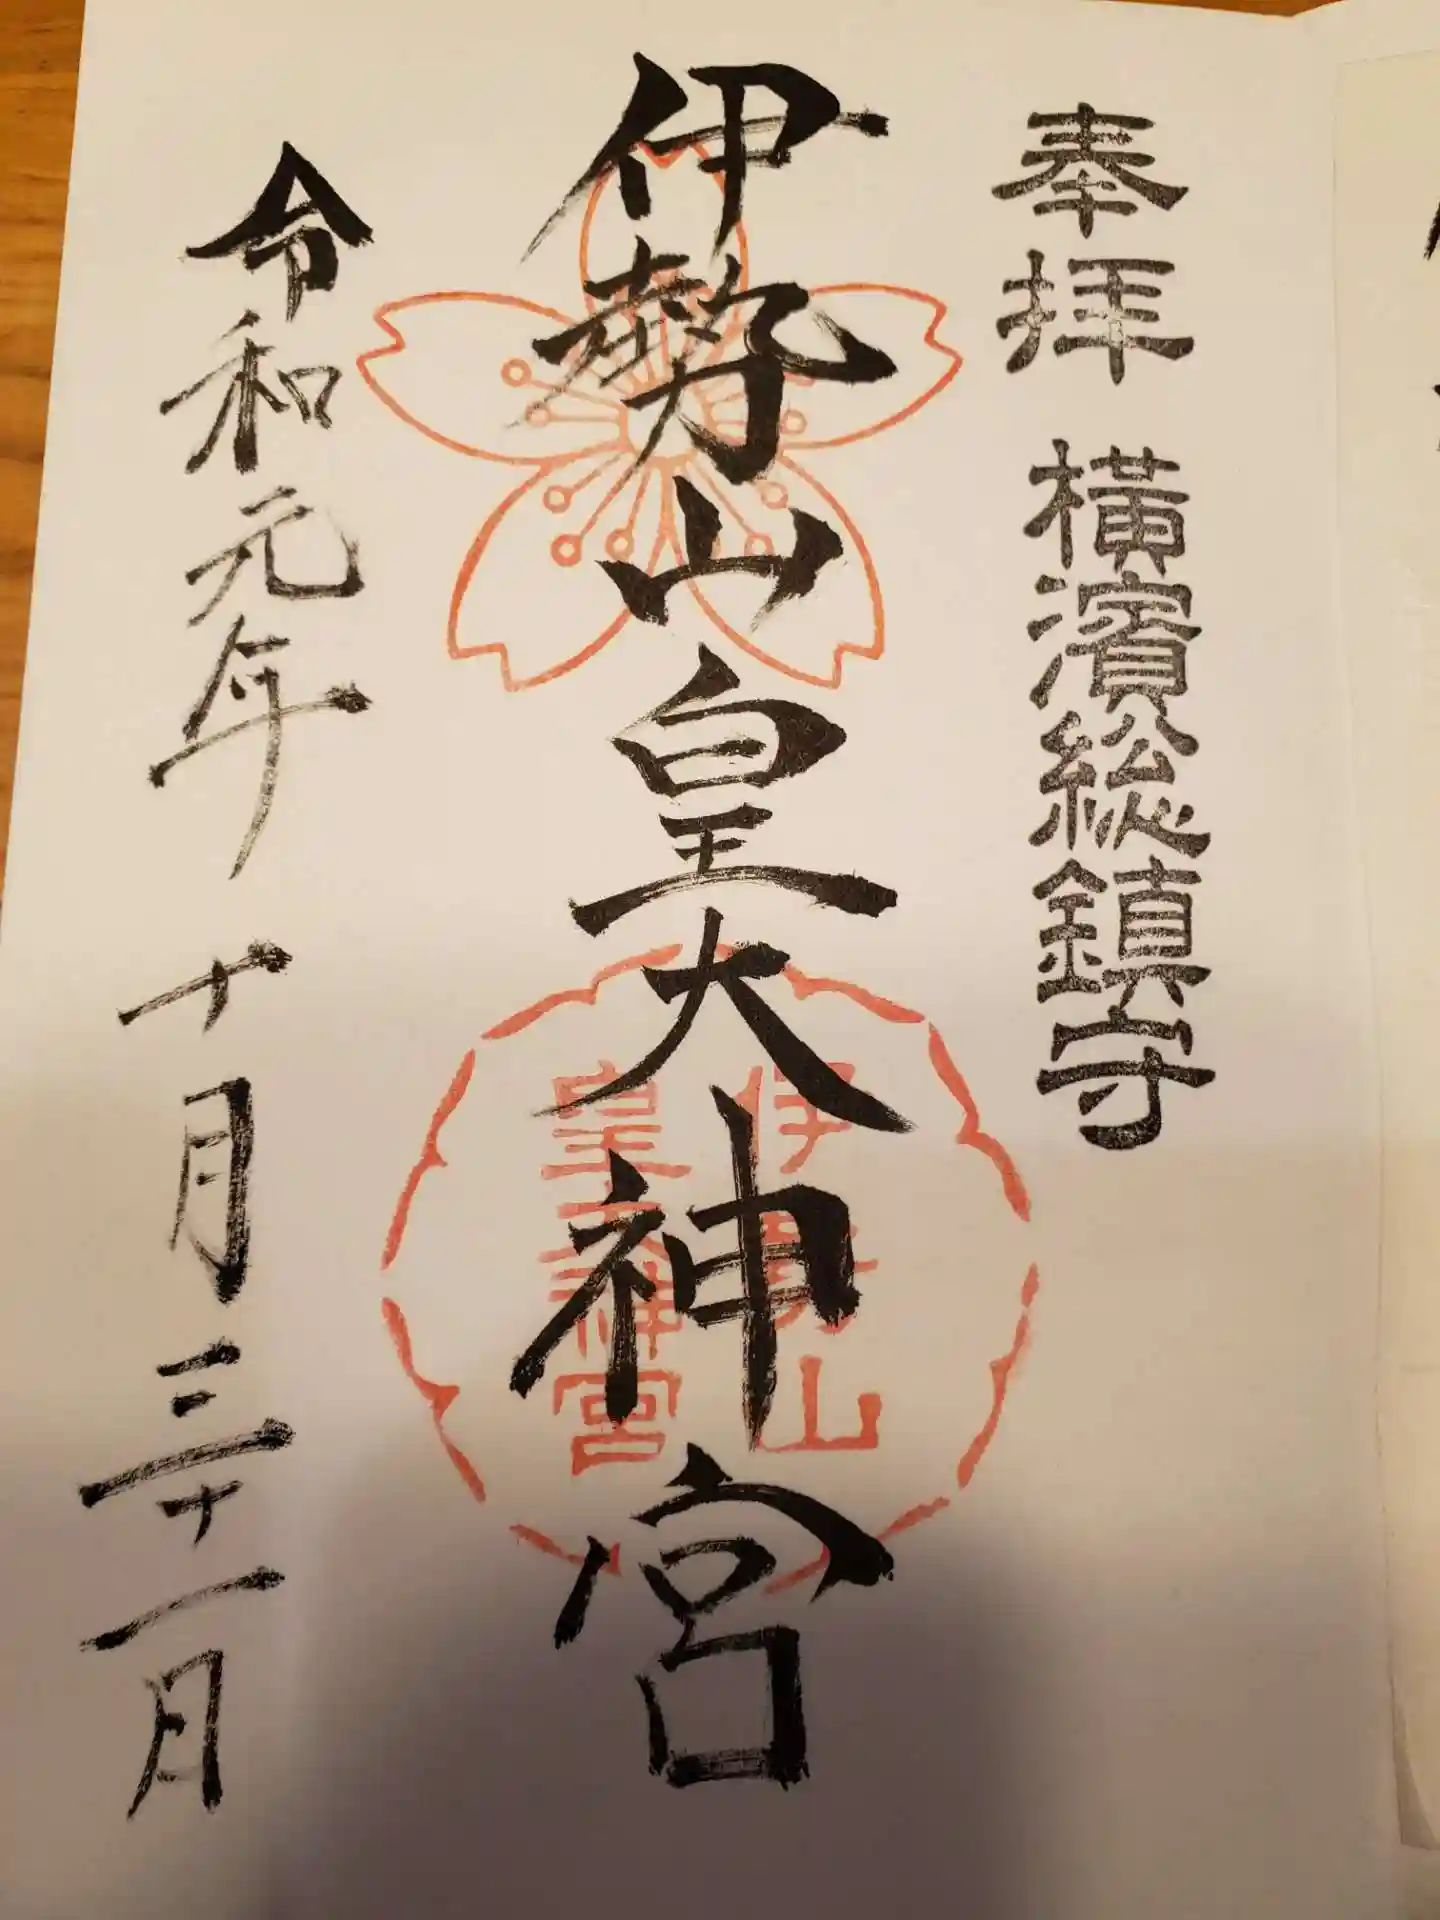 奉拝 横濱総鎮守
伊勢山皇大神宮
伊勢山
皇大神宮
令和元年 十月三十一日